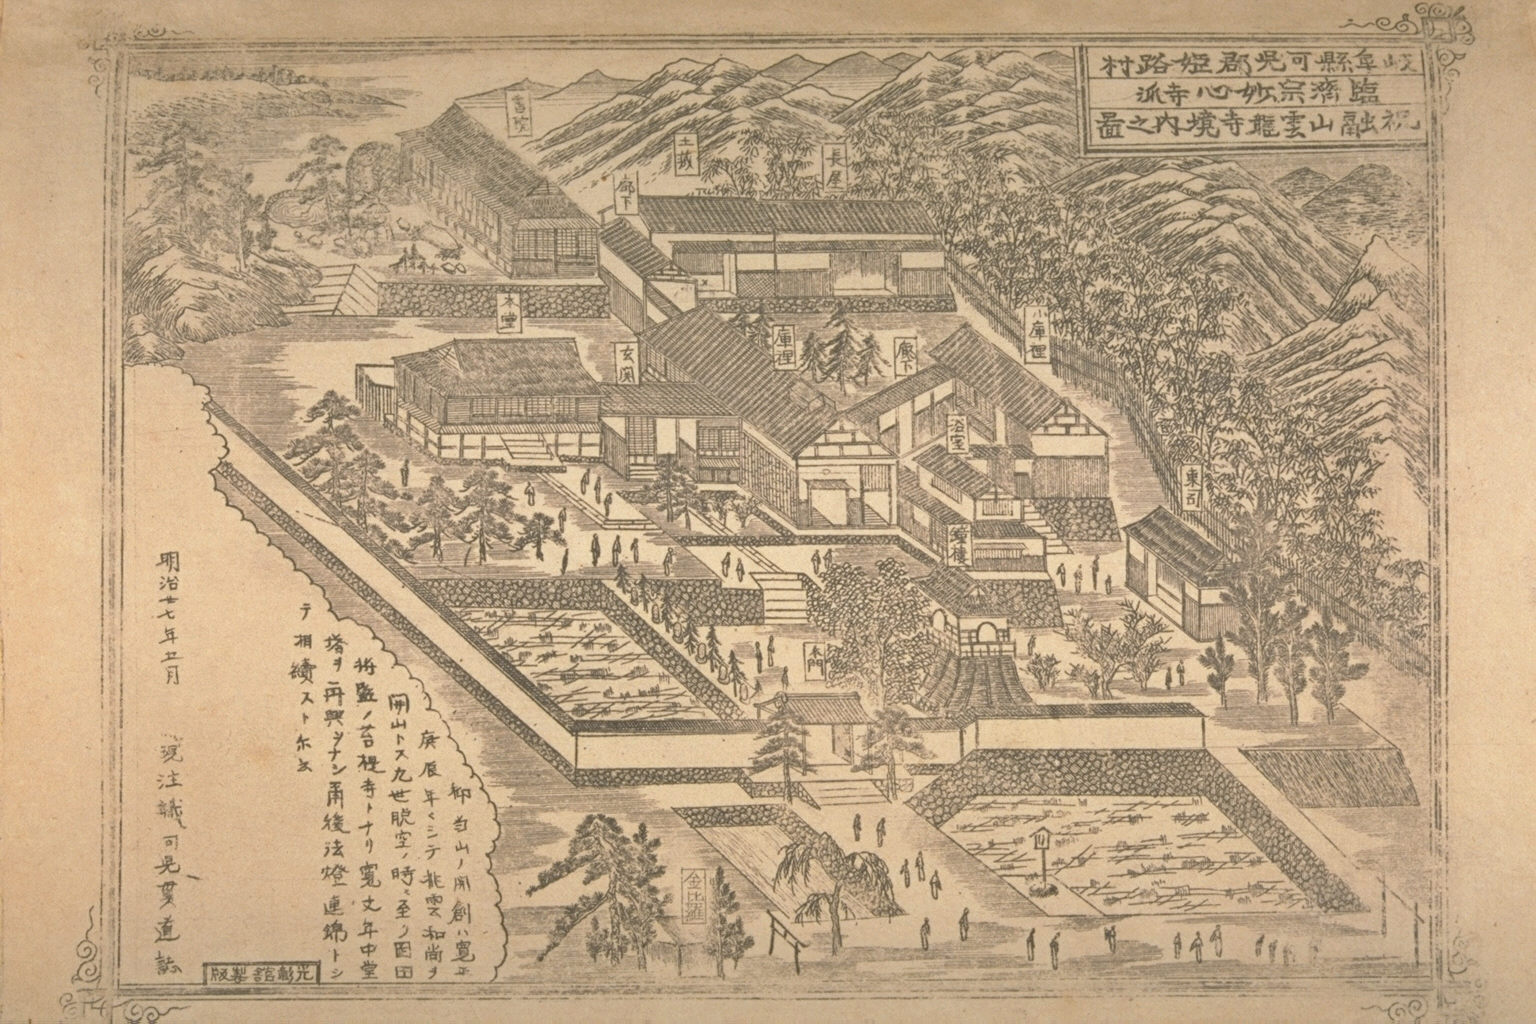 岐阜縣可児郡姫路村
臨濟宗妙心寺派
祝融山雲龍寺境内之圖
書院
土蔵
長屋
廊下
本堂
玄関
庫裡
廊下
小庫裡
浴室
東司
鐘楼
本門
金比羅
抑當山ノ開創ハ寛正
庚辰年ニシテ龍雲和尚ヲ
開山トス九世脱空ノ時ニ至リ
ノ菩提寺トナリ寛文年中堂
塔ヲ再興ヲナシ爾後法燈連綿トシ
テ相續スト云
明治廿七年五月
現住職可児貫道誌
光彰舘製版